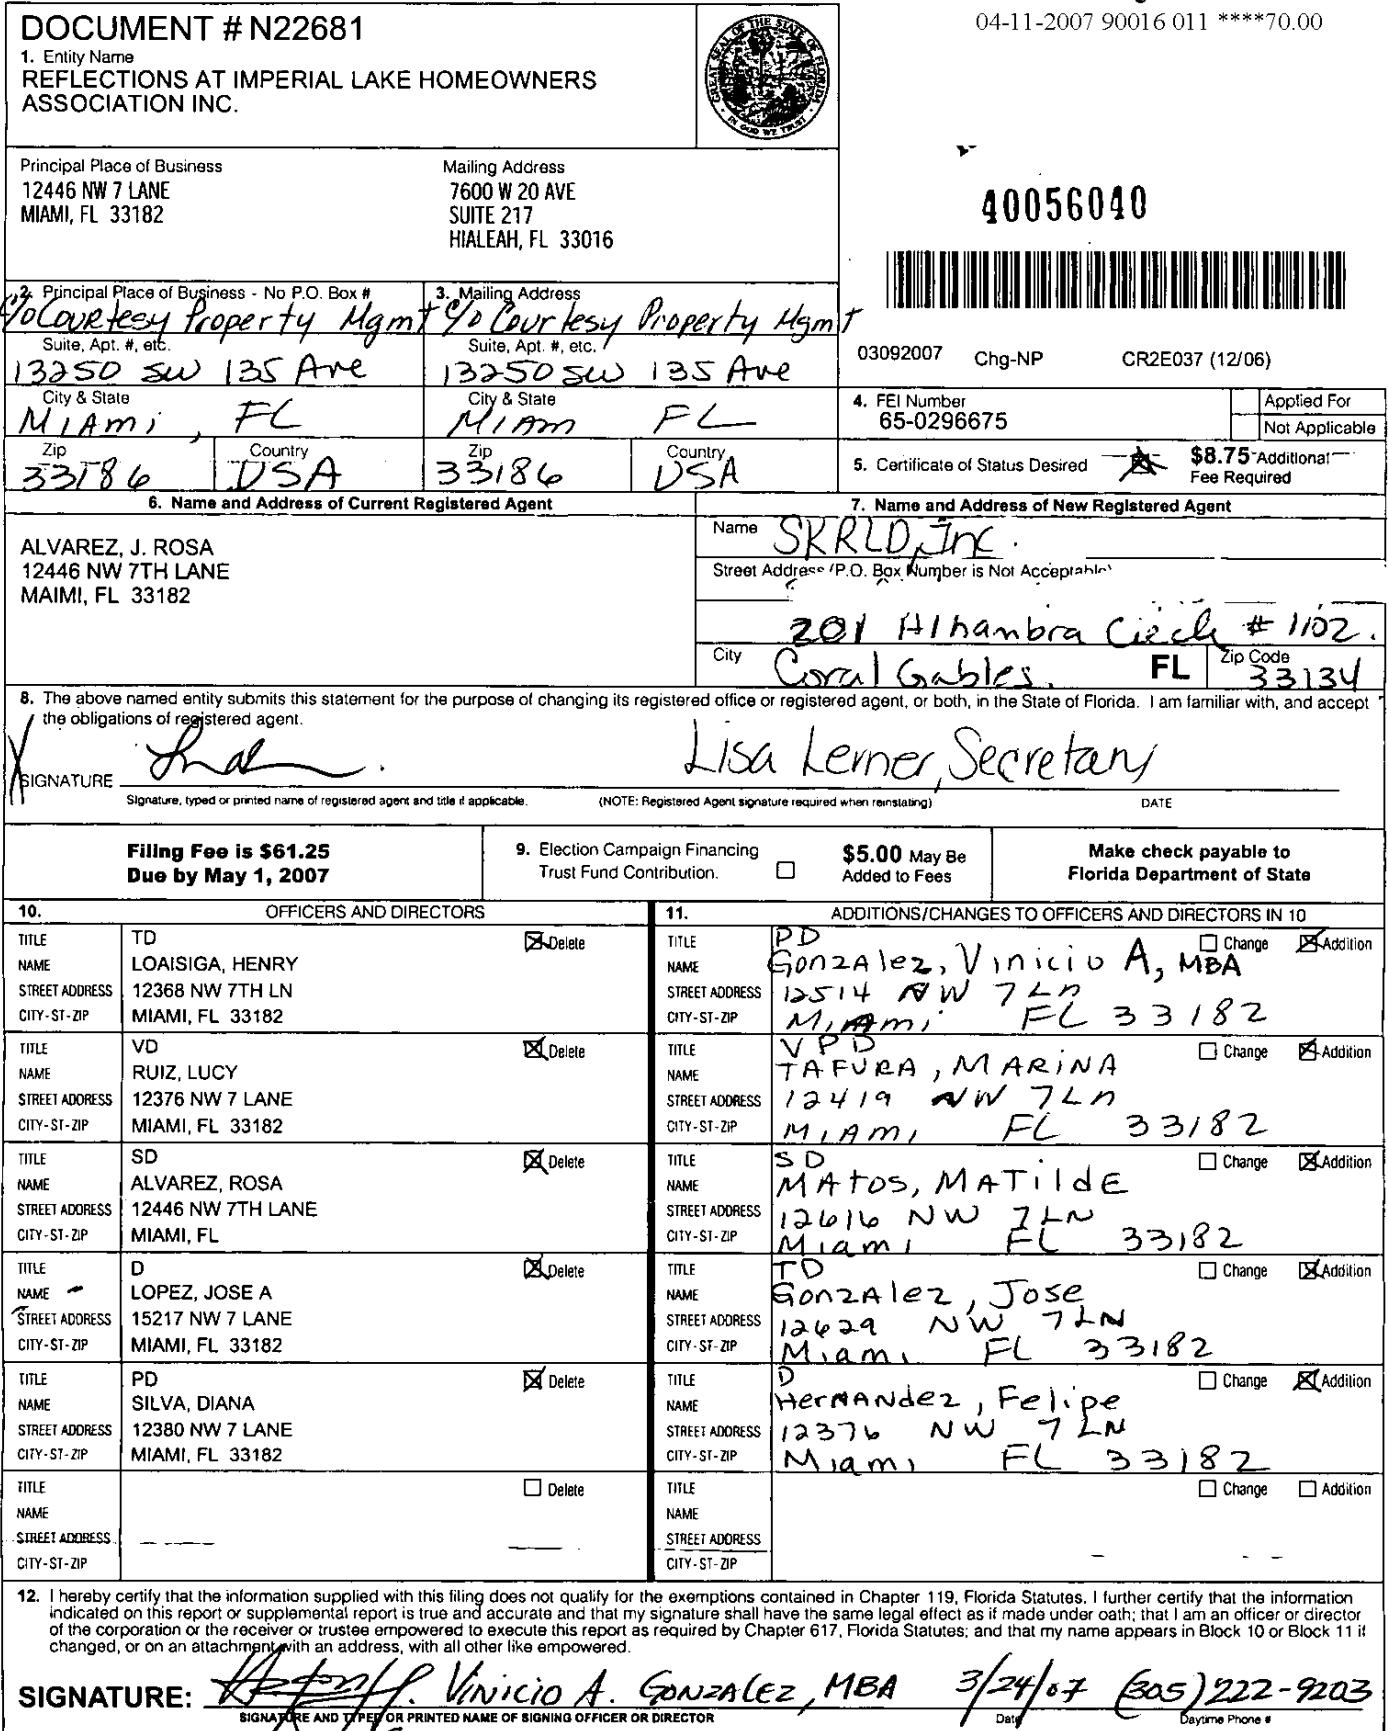 04-11-2007 90016 011 ****70.00
DOCUMENT # N22681
1. Entity Name
REFLECTIONS AT IMPERIAL LAKE HOMEOWNERS
ASSOCIATION INC.
GREAT SEAL OF THE STATE OF FLORIDA
IN GOD WE TRUST
Principal Place of Business
12446 NW 7 LANE
MIAMI, FL 33182
Mailing Address
7600 W 20 AVE
SUITE 217
HIALEAH, FL 33016
40056040
2. Principal Place of Business - No P.O. Box #
c/o Courtesy Property Mgmt
Suite, Apt. #, etc.
13250 SW 135 Ave
City & State
Miami, FL
Zip
33186
Country
USA
3. Mailing Address
c/o Courtesy Property Mgmt
Suite, Apt. #, etc.
13250 SW 135 Ave
City & State
Miam FL
Zip
33186
Country
USA
03092007 Chg-NP CR2E037 (12/06)
4. FEI Number
65-0296675
Applied For
Not Applicable
5. Certificate of Status Desired
$8.75 Additional
Fee Required
6. Name and Address of Current Registered Agent
ALVAREZ, J. ROSA
12446 NW 7TH LANE
MAIMI, FL 33182
7. Name and Address of New Registered Agent
Name SKRLD, Inc.
Street Address (P.O. Box Number is Not Acceptable)
201 Alhambra Circle # 1102.
City Coral Gables. FL Zip Code 33134
8. The above named entity submits this statement for the purpose of changing its registered office or registered agent, or both, in the State of Florida. I am familiar with, and accept
the obligations of registered agent.
X SIGNATURE Lisa Lerner, Secretary
Signature, typed or printed name of registered agent and title if applicable. (NOTE: Registered Agent signature required when reinstating) DATE
Filing Fee is $61.25
Due by May 1, 2007
9. Election Campaign Financing
Trust Fund Contribution.
$5.00 May Be
Added to Fees
Make check payable to
Florida Department of State
10. OFFICERS AND DIRECTORS
TITLE TD Delete
NAME LOAISIGA, HENRY
STREET ADDRESS 12368 NW 7TH LN
CITY-ST-ZIP MIAMI, FL 33182
TITLE VD Delete
NAME RUIZ, LUCY
STREET ADDRESS 12376 NW 7 LANE
CITY-ST-ZIP MIAMI, FL 33182
TITLE SD Delete
NAME ALVAREZ, ROSA
STREET ADDRESS 12446 NW 7TH LANE
CITY-ST-ZIP MIAMI, FL
TITLE D Delete
NAME LOPEZ, JOSE A
STREET ADDRESS 15217 NW 7 LANE
CITY-ST-ZIP MIAMI, FL 33182
TITLE PD Delete
NAME SILVA, DIANA
STREET ADDRESS 12380 NW 7 LANE
CITY-ST-ZIP MIAMI, FL 33182
TITLE Delete
NAME
STREET ADDRESS
CITY-ST-ZIP
11. ADDITIONS/CHANGES TO OFFICERS AND DIRECTORS IN 10
TITLE PD Change Addition
NAME Gonzalez, Vinicio A, MBA
STREET ADDRESS 12514 NW 7 Ln
CITY-ST-ZIP Miami FL 33182
TITLE VPD Change Addition
NAME TAFURA, MARINA
STREET ADDRESS 12419 NW 7 Ln
CITY-ST-ZIP Miami FL 33182
TITLE SD Change Addition
NAME MATOS, MATILDE
STREET ADDRESS 12616 NW 7 LN
CITY-ST-ZIP Miami FL 33182
TITLE TD Change Addition
NAME Gonzalez, Jose
STREET ADDRESS 12629 NW 7 LN
CITY-ST-ZIP Miami FL 33182
TITLE D Change Addition
NAME Hernandez, Felipe
STREET ADDRESS 12376 NW 7 LN
CITY-ST-ZIP Miami FL 33182
TITLE Change Addition
NAME
STREET ADDRESS
CITY-ST-ZIP
12. I hereby certify that the information supplied with this filing does not qualify for the exemptions contained in Chapter 119, Florida Statutes. I further certify that the information
indicated on this report or supplemental report is true and accurate and that my signature shall have the same legal effect as if made under oath; that I am an officer or director
of the corporation or the receiver or trustee empowered to execute this report as required by Chapter 617, Florida Statutes; and that my name appears in Block 10 or Block 11 if
changed, or on an attachment with an address, with all other like empowered.
SIGNATURE: Vinicio A. Gonzalez, MBA 3/24/07 (305) 222-9203
SIGNATURE AND TYPED OR PRINTED NAME OF SIGNING OFFICER OR DIRECTOR Date Daytime Phone #